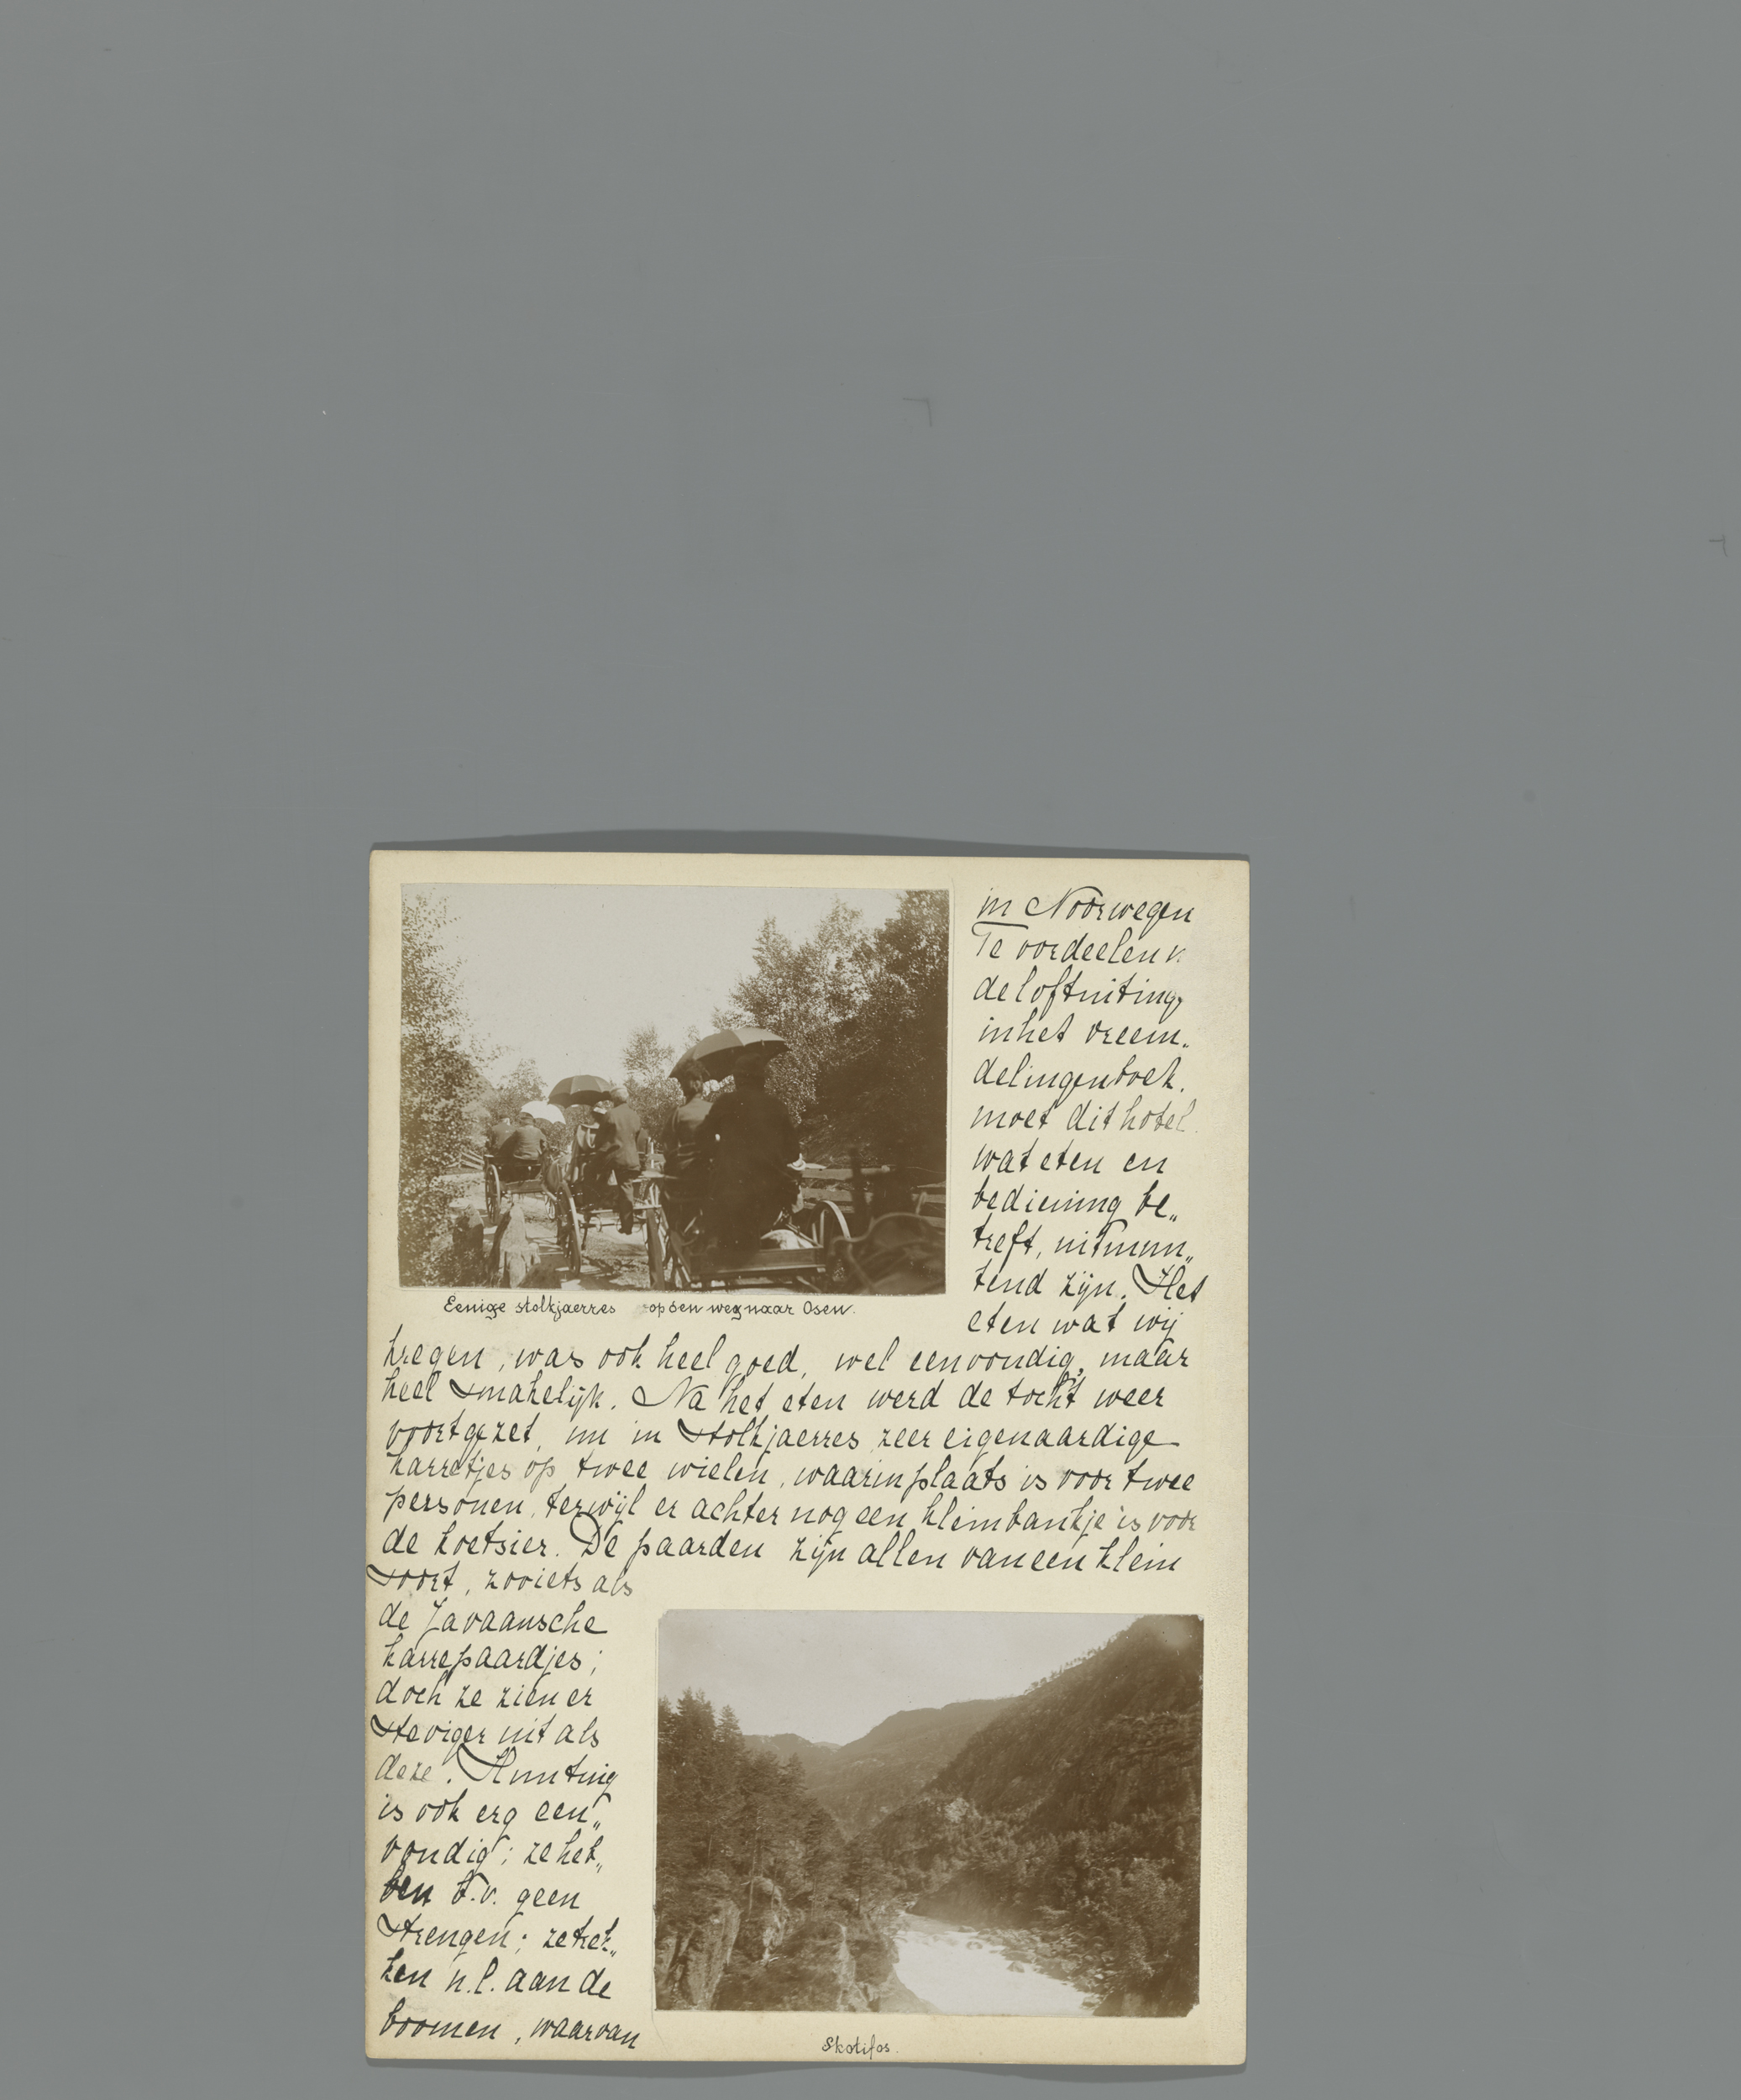 in Noorwegen
Te oordeelen v.
de loftuiting
in het vreem„
delingenboek.
moet dit hotel
wat eten en
bediening be„
treft, uitmun„
tend zijn. Het
eten wat wij
Eenige stolkjaerres op den weg naar Osen.
kregen, was ook heel goed, wel eenvoudig, maar
heel smakelijk. Na het eten werd de tocht weer
voortgezet, nu in Stolkjaerres zeer eigenaardige
karretjes op twee wielen, waarin plaats is voor twee
personen, terwijl er achter nog een klein bankje is voor
de koetsier. De paarden zijn allen van een klein
soort, zooiets als
de Javaansche
karrepaardjes;
doch ze zien er
steviger uit als
deze. Hun tuig
is ook erg een„
voudig; ze heb„
ben b.v. geen
strengen; ze trek„
ken n.l. aan de
boomen, waarvan
Skotifos.